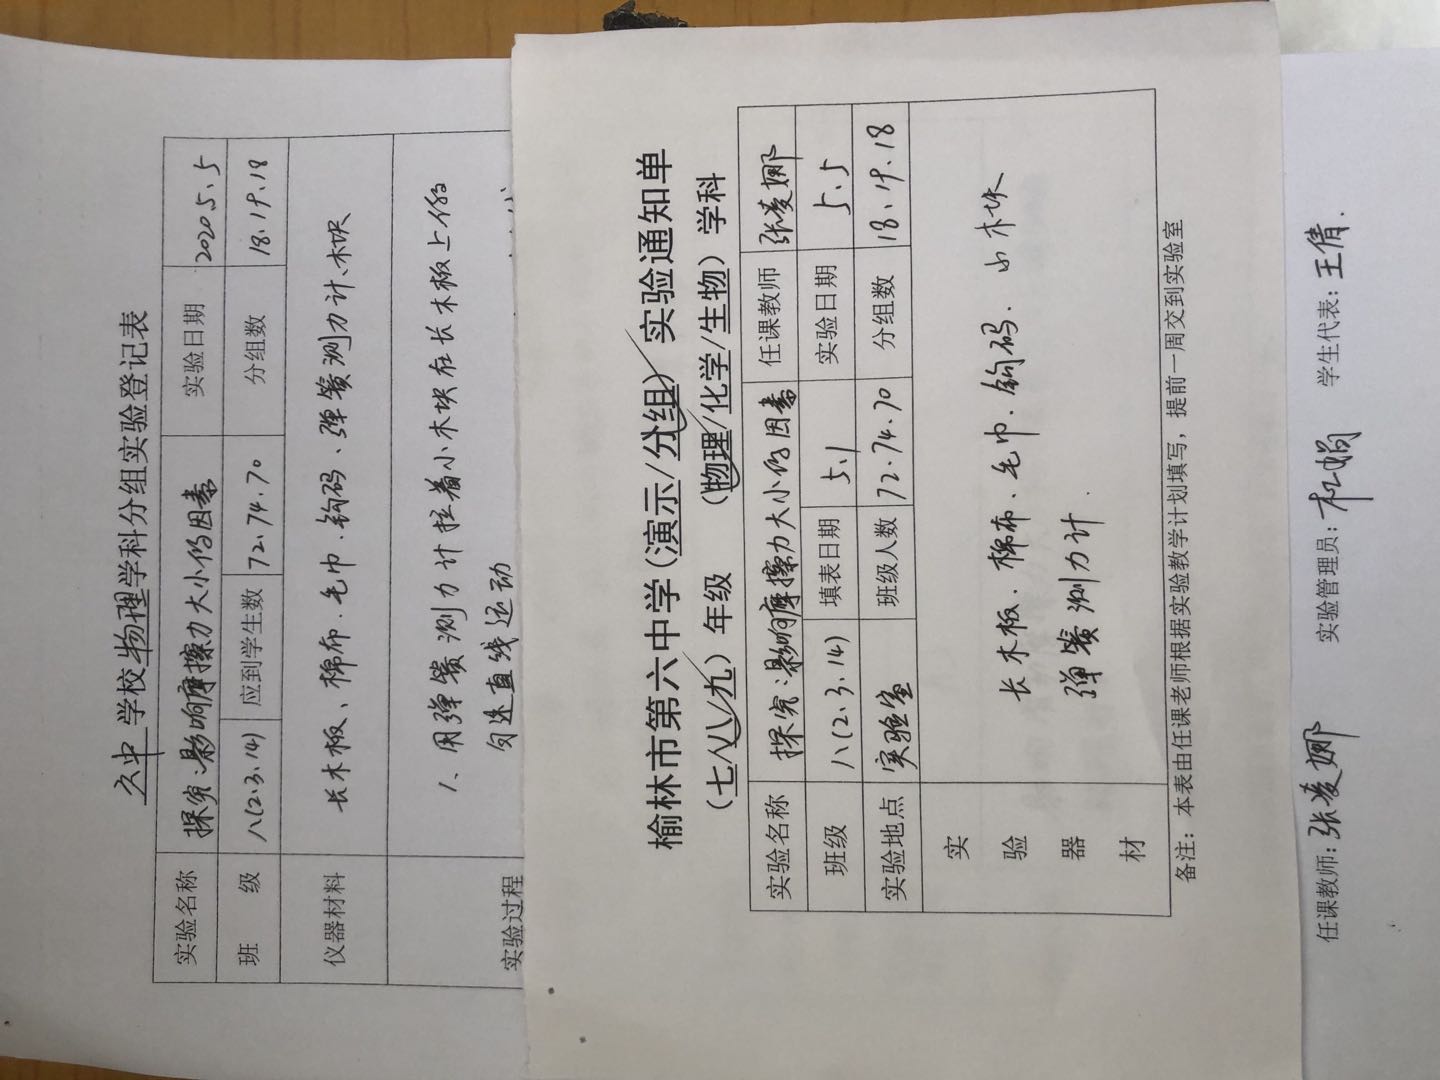 六中学校物理学科分组实验登记表
实验名称 探究:影响摩擦力大小的因素 实验日期 2020.5.5
班 级 八(2.3.14) 应到学生数 72.74.70 分组数 18.19.18
仪器材料 长木板、棉布、毛巾、钩码、弹簧测力计、木块
实验过程 1、用弹簧测力计拉着小木块在长木板上做
匀速直线运动
榆林市第六中学(演示/分组)实验通知单
(七/八/九)年级 (物理/化学/生物)学科
实验名称 探究:影响摩擦力大小的因素 任课教师 张凌娜
班级 八(2.3.14) 填表日期 5.1 实验日期 5.5
实验地点 实验室 班级人数 72.74.70 分组数 18.19.18
实验器材 长木板、棉布、毛巾、钩码、小木块
弹簧测力计
备注:本表由任课老师根据实验教学计划填写,提前一周交到实验室
任课教师:张凌娜 实验管理员:杜娟 学生代表:王倩.